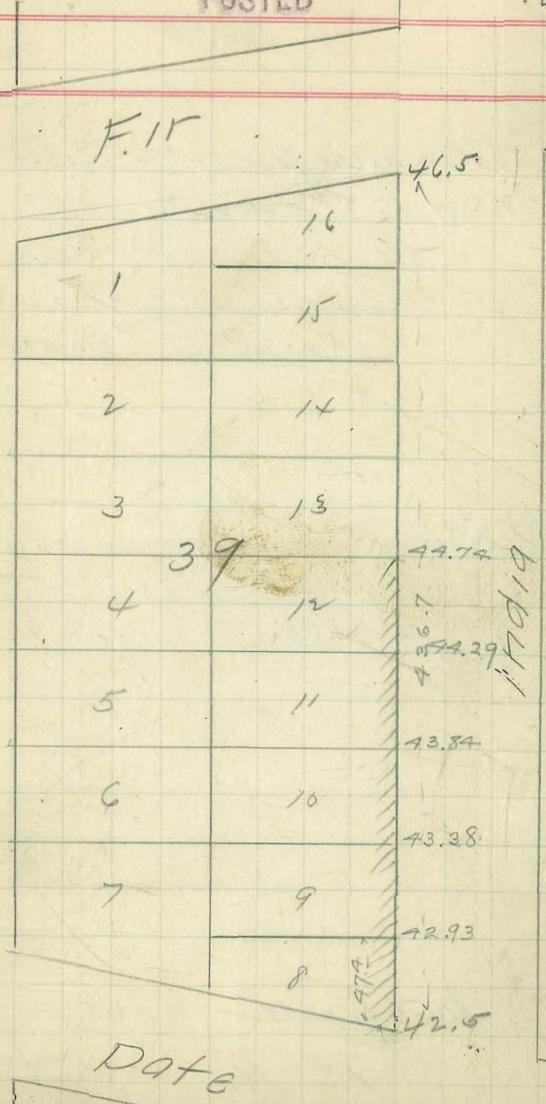 POSTED
Fir
46.5
16
1
15
2
14
3
13
39
44.74
4
12
436.7
44.29
India
5
11
43.84
6
10
43.38
7
9
42.93
8
47.4
42.5
Date